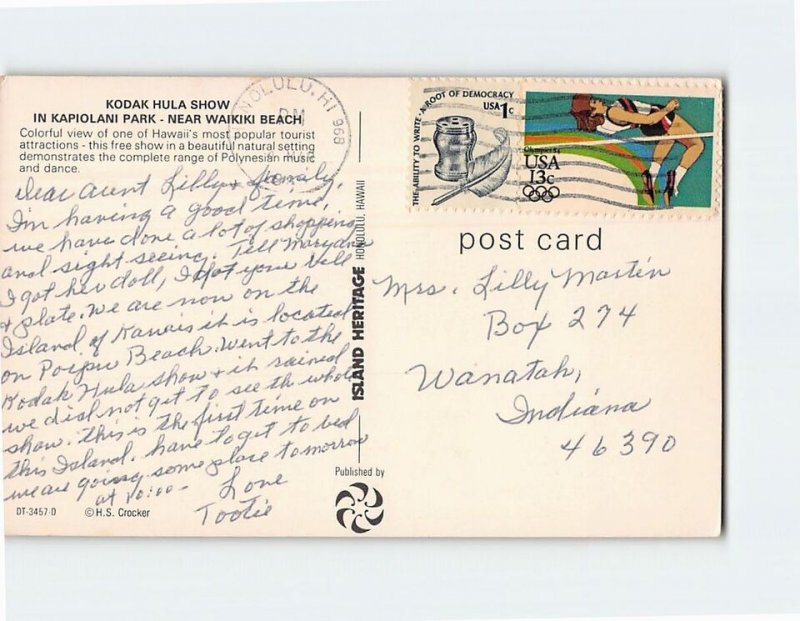 KODAK HULA SHOW
IN KAPIOLANI PARK - NEAR WAIKIKI BEACH
Colorful view of one of Hawaii's most popular tourist
attractions - this free show in a beautiful natural setting
demonstrates the complete range of Polynesian music
and dance.
Dear Aunt Lilly & family,
I'm having a good time,
we have done a lot of shopping
and sight seeing. Tell Maryann
I got her doll, I got your bell
& plate. We are now on the
Island of Kauai it is located
on Poipu Beach. Went to the
Kodak Hula show & it rained
we did not get to see the whole
show. this is the first time on
this Island. have to get to bed
we are going some place tomorrow
at 10:00-
Love
Tootie
DT-3457-D © H.S. Crocker
ISLAND HERITAGE HONOLULU, HAWAII
Published by
HONOLULU, HI 968
PM
THE ABILITY TO WRITE - A ROOT OF DEMOCRACY
USA 1c
Olympics 84
USA
13c
post card
Mrs. Lilly Martin
Box 274
Wanatah,
Indiana
46390